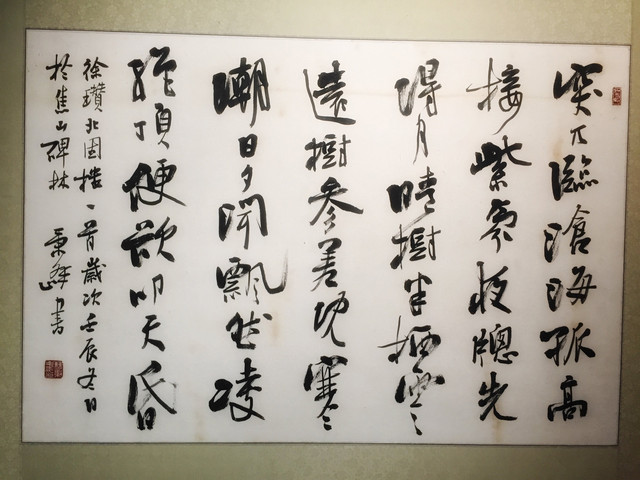 突兀臨滄海孤高
接紫雰夜牕先
得月晴樹半栖雲
遠樹參差見寒
潮日夕聞飄然凌
絕頂便欲叩天
徐瓚北固樓一首歲次壬辰冬日
於焦山碑林 書